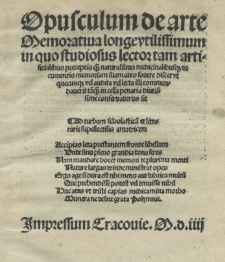 Opusculum de arte
Memorativa longe utilissimum
in quo studiosus lector tam arti-
ficialibus preceptis q̄ naturalibus medicinalibusq; do
cumentis memoriam suam adeo fovere discet ut
quecunq; vel audita vel lecta illi commen-
daverit tāq; in cella penaria diutis-
sime conservaturus sit
Ad turbam scholasticā et litte-
rarie supellectilis amatricem
Accipias leta prestantem fronte libellum
Unde sinu pleno grandia dona feres
Nam mandare docet memori te plurima menti
Nature largas et inde ministrat opes
Ergo age si dura est tibi mens aut lubrica multū
Que prehendisse potest vel tenuisse nihil
Due abis et tristi capias medicamina morbo
Munera nec desinet grata Polymnie.
Impressum Cracovie. M.d.iiij